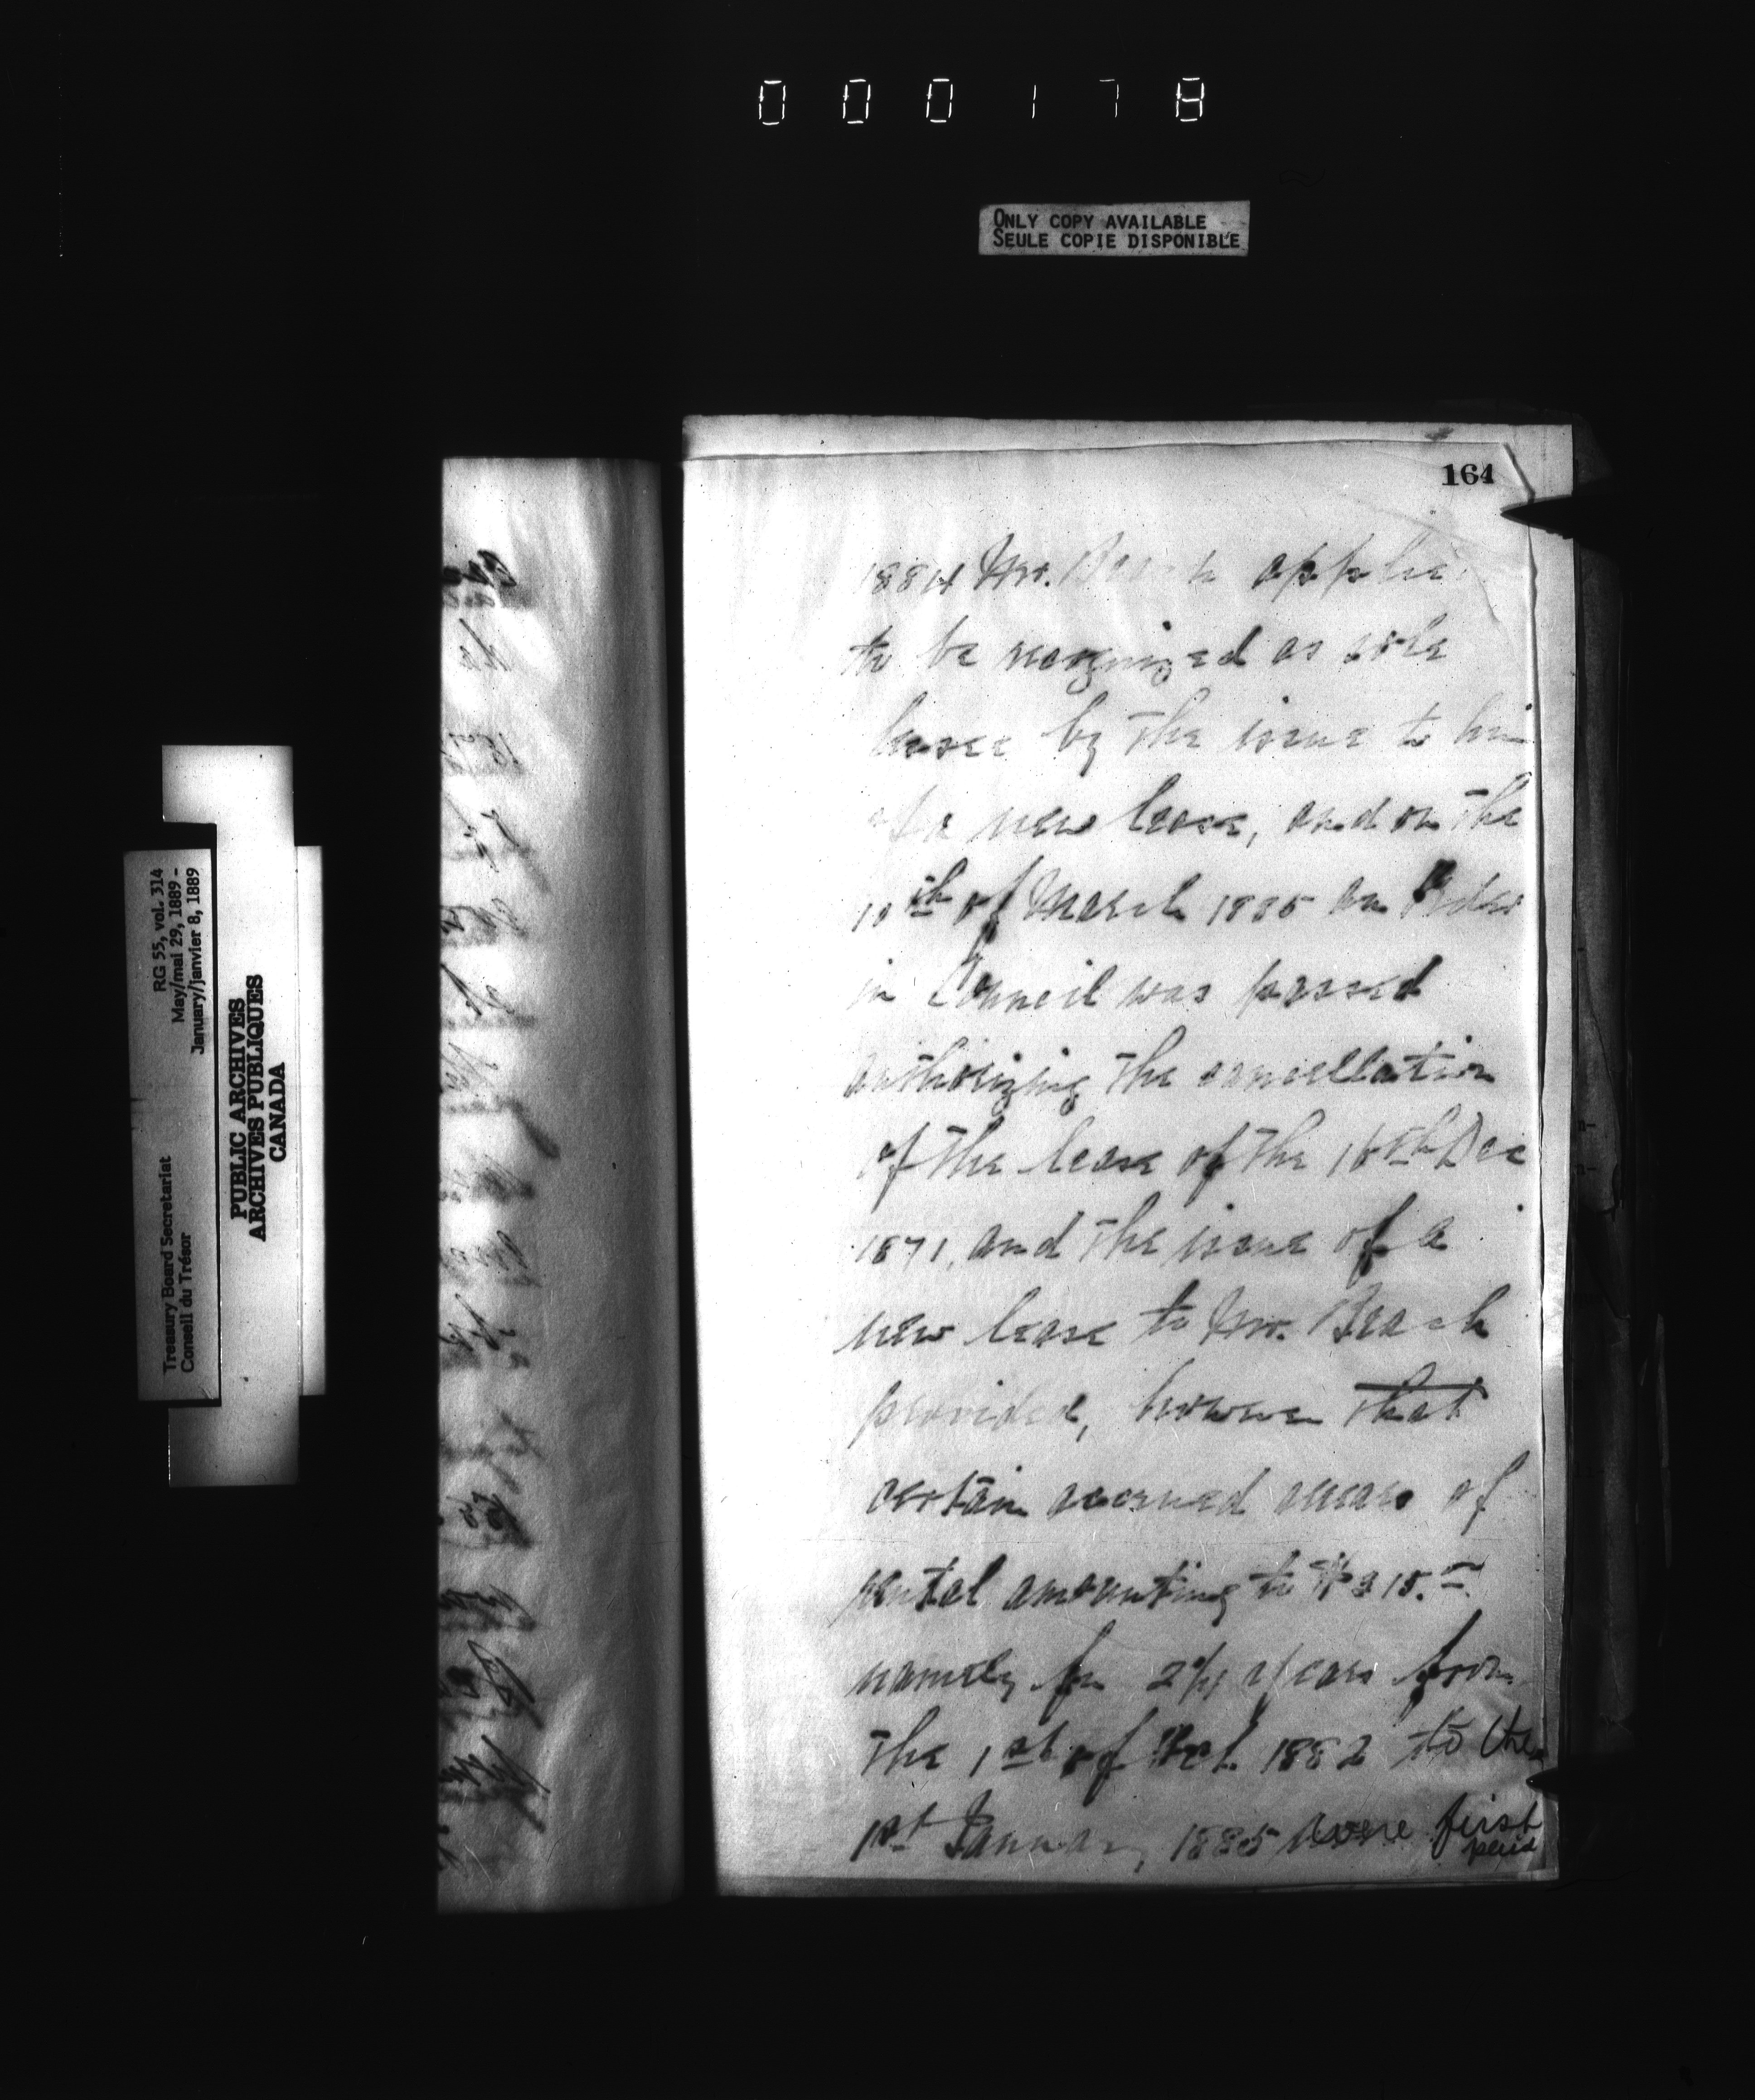 000178
ONLY COPY AVAILABLE
SEULE COPIE DISPONIBLE
RG 55, vol. 314
May/mai 29, 1889 -
January/janvier 8, 1889
Treasury Board Secretariat
Conseil du Trésor
PUBLIC ARCHIVES
ARCHIVES PUBLIQUES
CANADA
164
1884 Mr. Beach applied
to be recognized as sole
lessee by the issue to him
of a new lease, and on the
10th of March 1885 an Order
in Council was passed
authorizing the cancellation
of the lease of the 15th Dec
1871, and the issue of a
new lease to Mr. Beach
provided, however that
certain accrued arrears of
rental amounting to
namely for years from
the 1st of 1882 to the
1st January, 1885 were first
paid